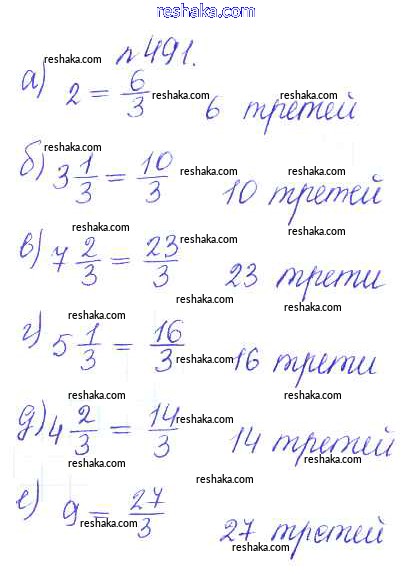 reshaka.com
№ 491.
reshaka.com
а) 2 = 6/3 reshaka.com 6 третей
reshaka.com
reshaka.com reshaka.com
б) 3 1/3 = 10/3 10 третей
reshaka.com reshaka.com
reshaka.com
в) 7 2/3 = 23/3 reshaka.com 23 трети
reshaka.com reshaka.com
reshaka.com
г) 5 1/3 = 16/3 reshaka.com 16 трети
reshaka.com reshaka.com
д) 4 2/3 = 14/3 reshaka.com 14 третей
reshaka.com reshaka.com
е) 9 = 27/3 27 третей
reshaka.com reshaka.com